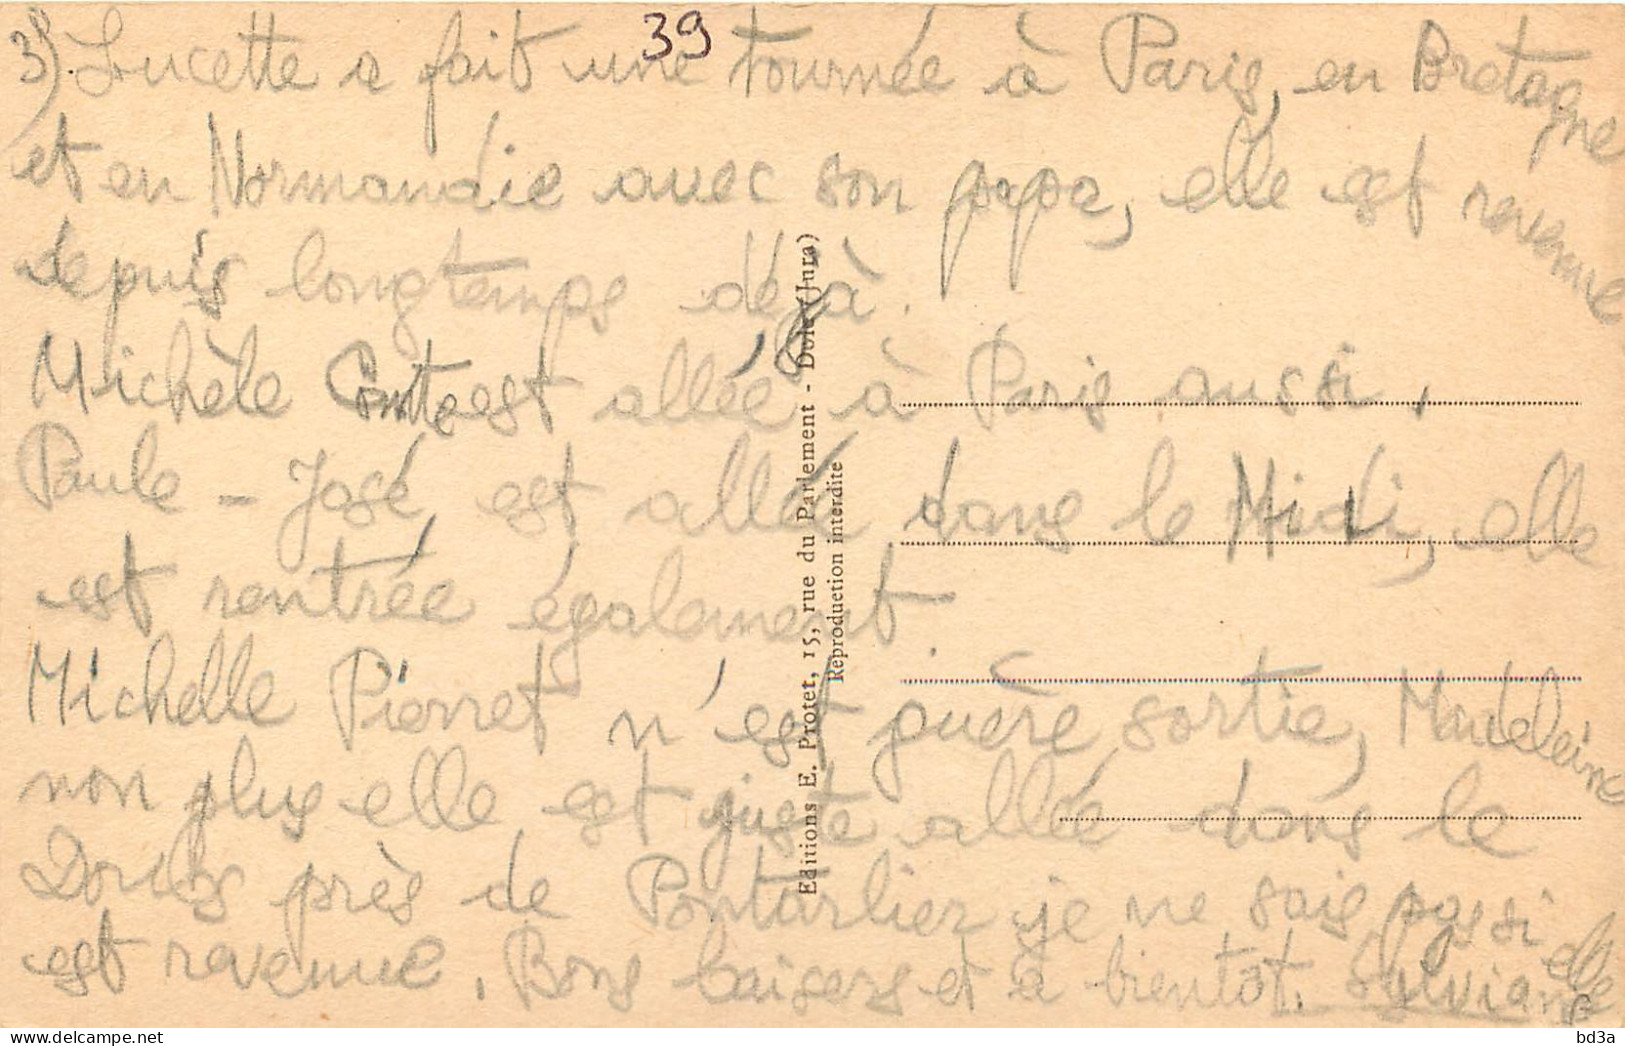 39
3) Lucette a fait une tournée à Paris, en Bretagne
et en Normandie avec son papa, elle est revenue
depuis longtemps déjà.
Michèle Comte est allée à Paris aussi.
Paule - José est allée dans le Midi, elle
est rentrée également.
Michelle Pierret n'est guère sortie, Madeleine
non plus elle est juste allée dans le
Doubs près de Pontarlier je ne sais pas si elle
est revenue. Bons baisers et à bientôt. Sylviane
Editions E. Protet, 15, rue du Parlement - Dole (Jura)
Reproduction interdite
bd3a